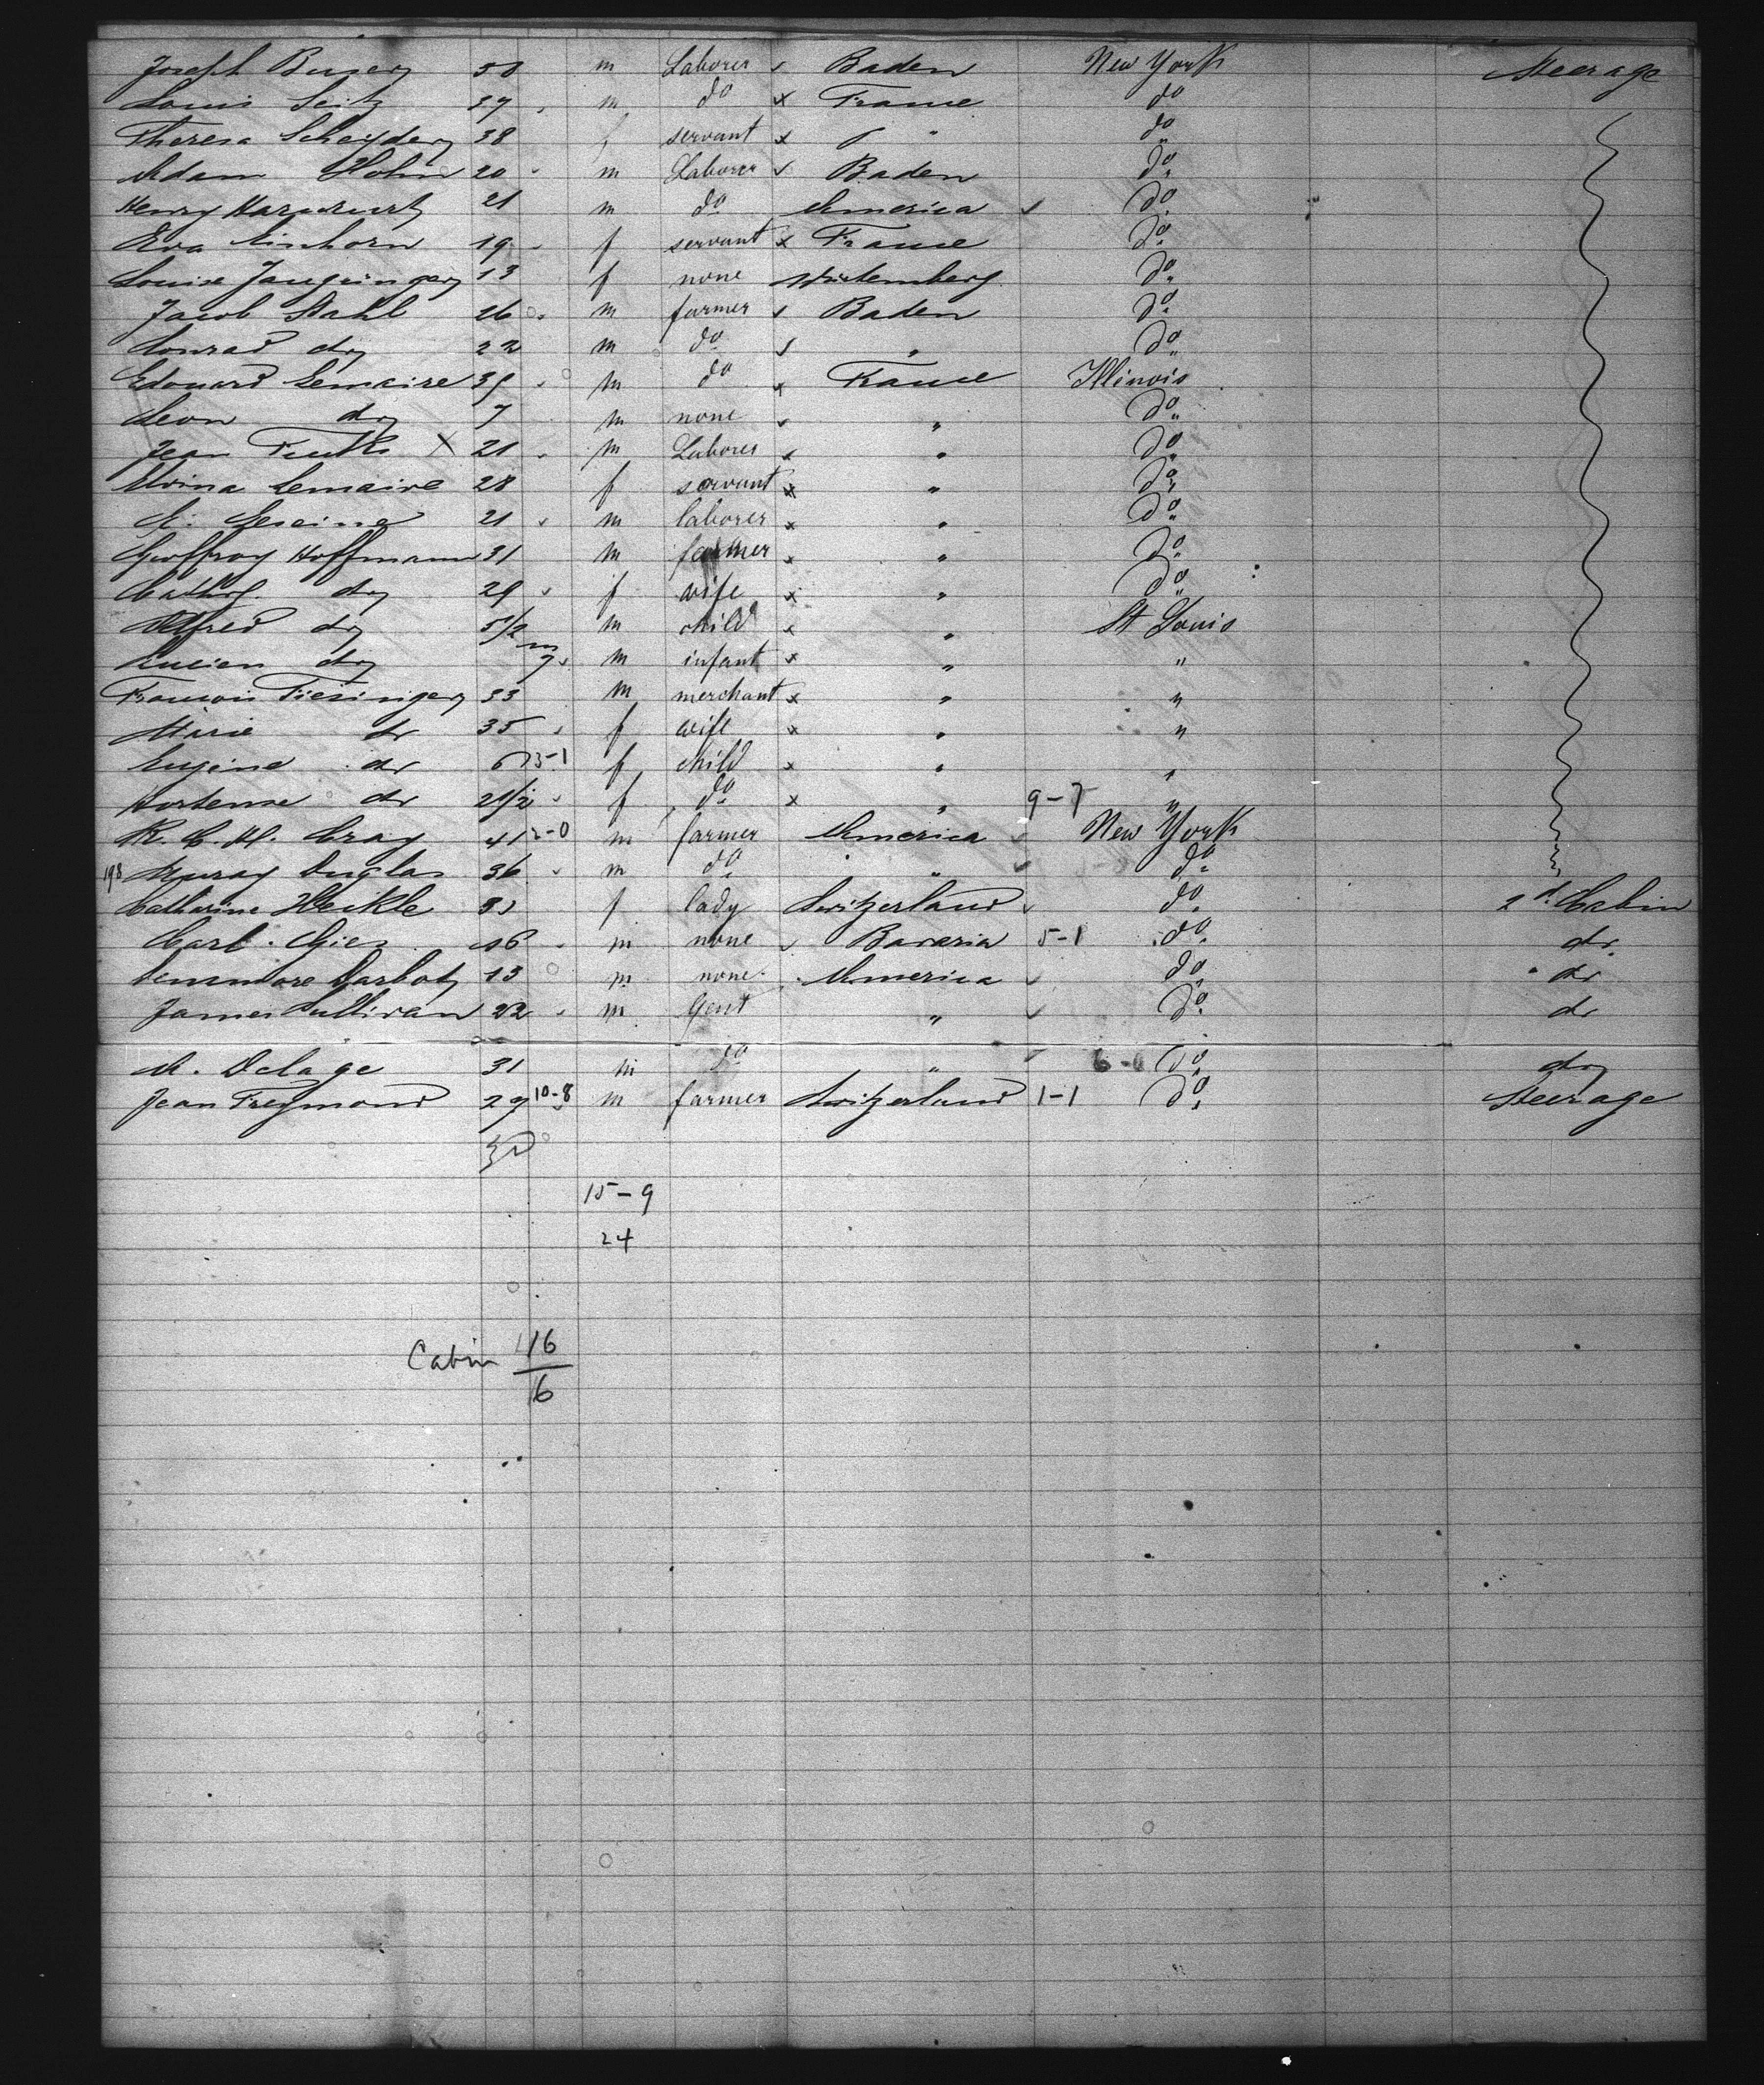 Joseph 50 m Laborer Baden New York Steerage
Louis Seitz 37 m do x France do
Theresa 38 f servant x " do
Adam Hohn 20 m Laborer Baden do
Henry 21 m do America do
Eva Einhorn 19 f servant x France do
Louise 13 f none Würtemberg do
Jacob Stahl 26 m farmer Baden do
Conrad do 22 m do " do
Edouard Lemaire 39 m do x France Illinois
Leon do 7 m none " do
Jean X 21 m Laborer x " do
Lemaire 28 f servant x " do
21 m laborer x " do
Geoffroy Hoffmann 31 m farmer x " do
do 29 f wife x " do
Alfred do 5 1/2 m child x " St Louis
Lucien do 7 m m infant x " "
François 33 m merchant x " "
Marie do 35 f wife x " "
Eugène do 6 f child x " "
Hortense do 2 1/2 f do x " 9-7 "
41 2-0 m farmer America New York
198 Murray Duglas 36 m do " do
Catharine 33 f lady Switzerland do 2d Cabin
Carl Gies 16 m none Bavaria 5-1 do do
13 m none America do do
James Sullivan 22 m Gent " do do
A. Delage 31 m do " 6-0 do do
Jean Freymond 27 10-8 m farmer Switzerland 1-1 do Steerage
30
15-9
24
Cabin 116
16